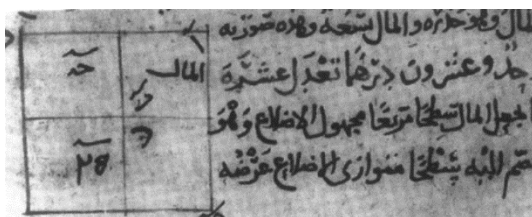 المال وهو جذره والمال تسعة وهذه صورته
احد وعشرون درهما تعدل عشرة
فاجعل المال سطحا مربعا مجهول الاضلاع وهو
نضم اليه سطحا متوازى الاضلاع عرضه
المال